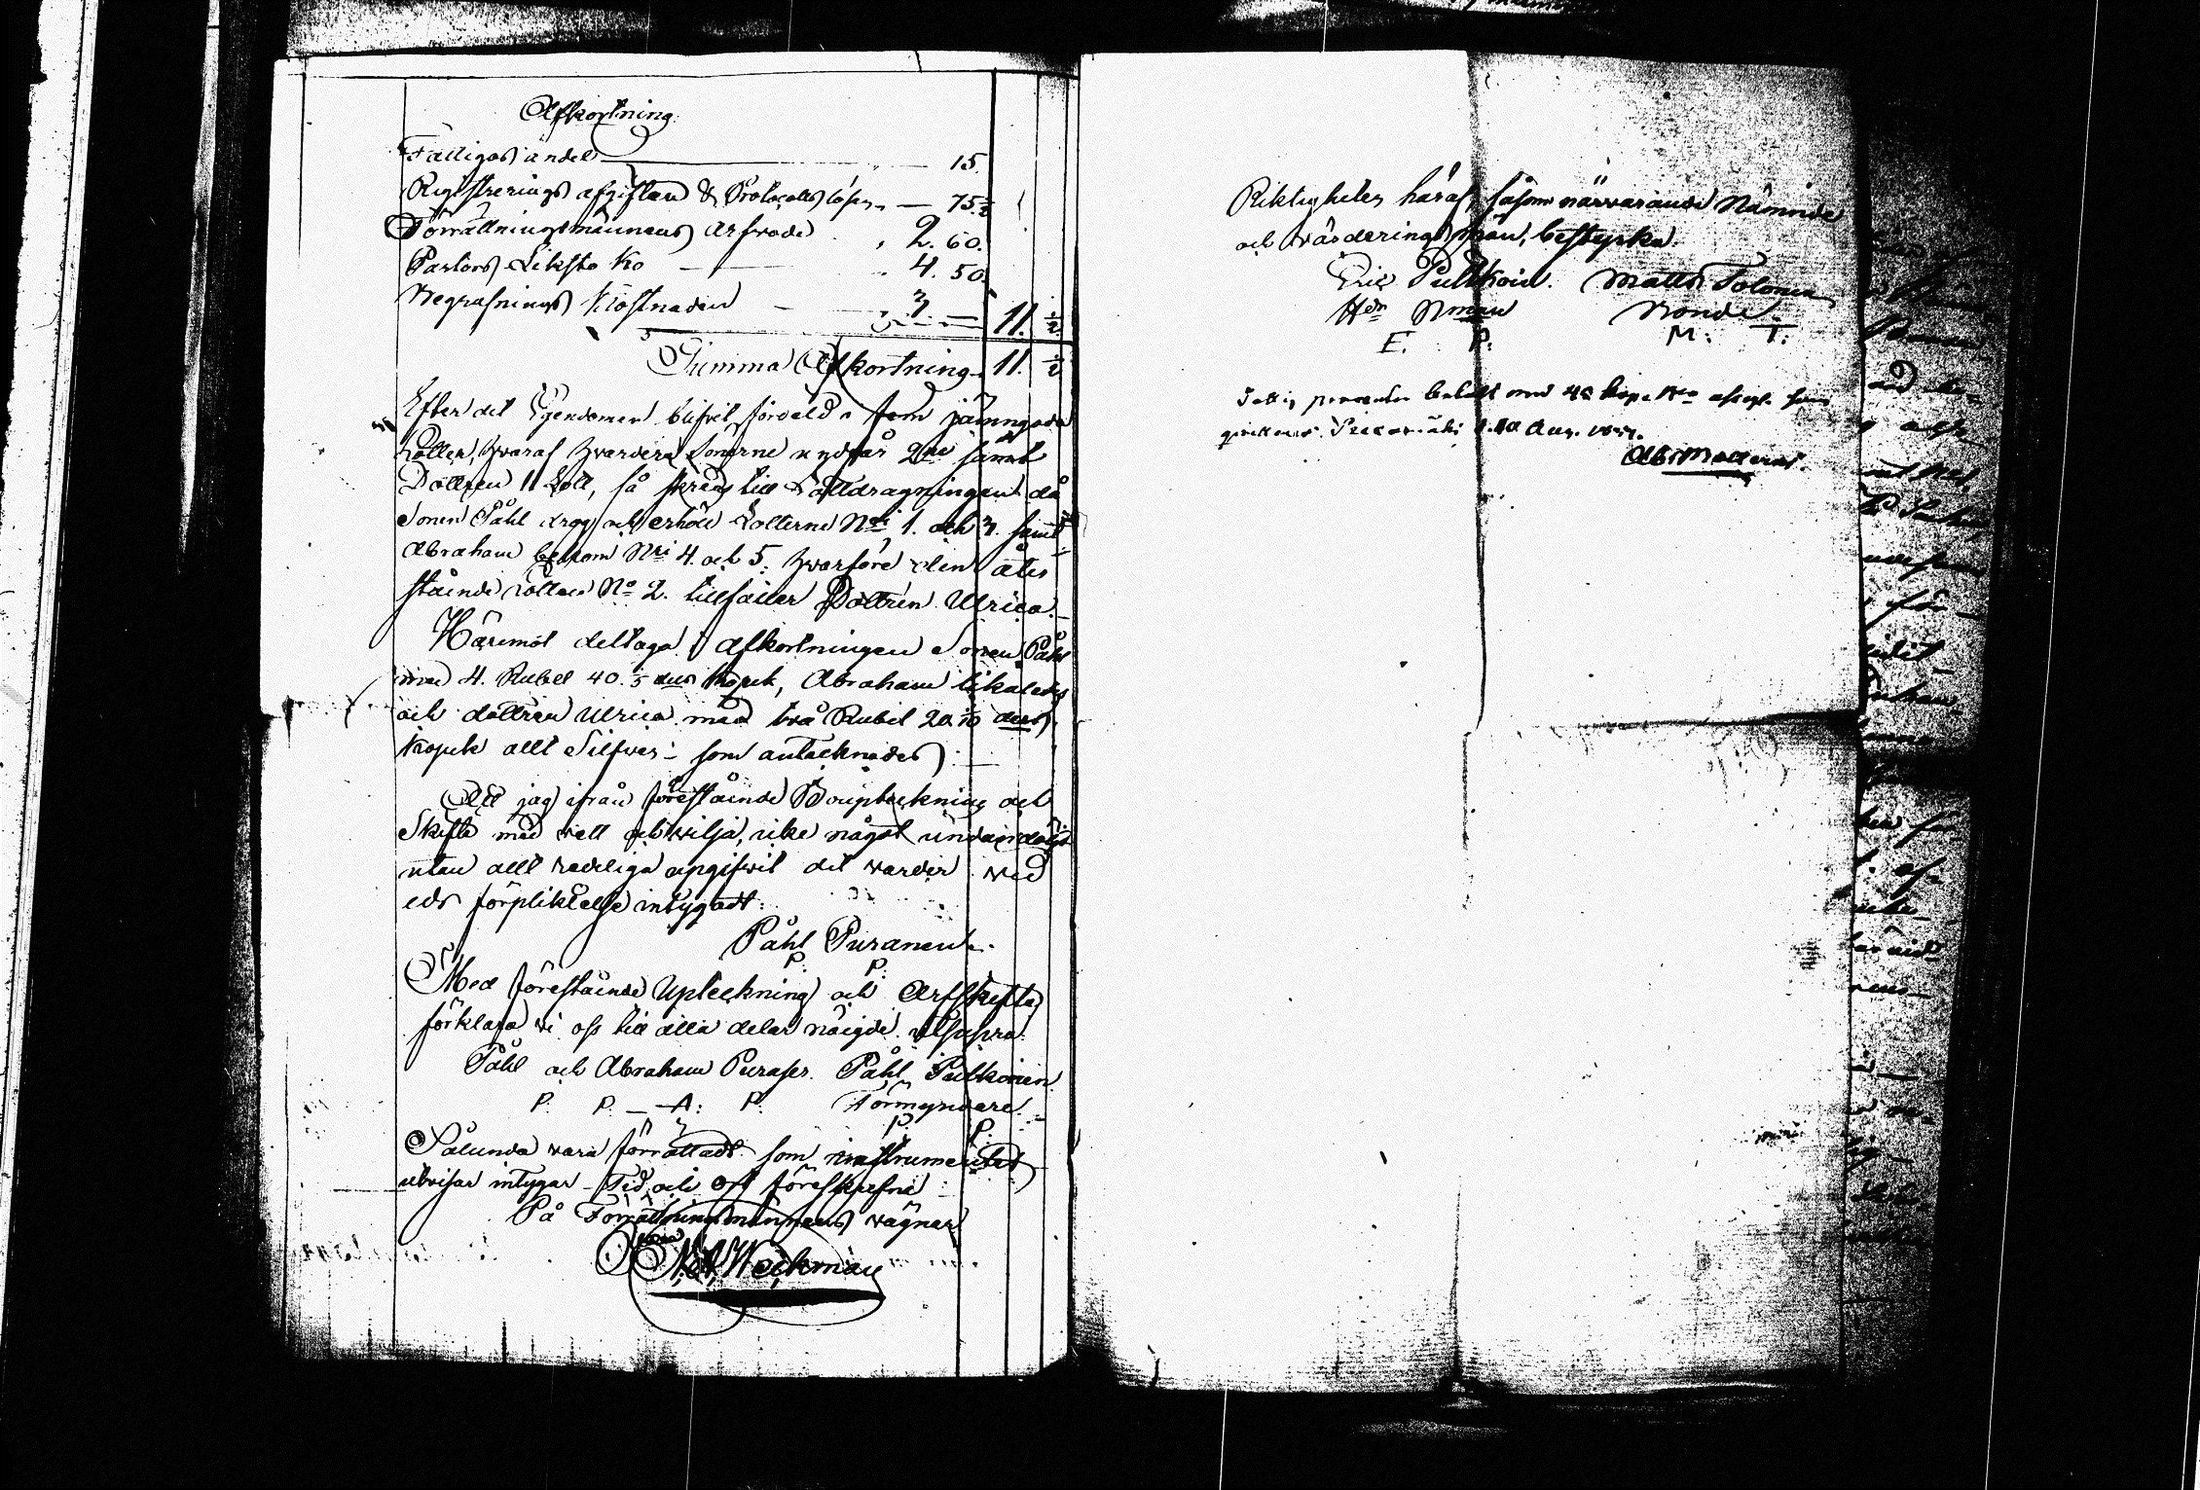 Afkortning.
Fattigas andel 15.
Registrerings afgiften & Protocolls lösen 75 1/2
Förrättningsmännens Arfvode 2. 60.
Pastors Liksto Ko 4. 50.
Begrafnings Kostnaden 3. — 11. 1/2
Summa Afkortning 11. 1/2
Efter det Egendomen blifvit fördeld i fem jämngoda
Lotter, hvaraf hvardera Sönerne undfår 2ne samt
Dottren 1 Lott, så skreds till Lottdragningen då
Sonen Påhl drog och erhöll Lotterne Nri 1. och 3. samt
Abraham bekom Nri 4. och 5. hvarföre den åter
stående Lotten No 2. tillfaller Dottren Ulrica.
Häremot deltaga i Afkortningen Sonen Påhl
med 4. Rubel 40. 1/5 dels Kopek, Abraham likaledes
och dottren Ulrica med två Rubel 20 1/10 dels
Kopek allt Silfver; som antecknades.
Att jag ifrån förestående Bouptekning och
Skifte med vett och vilja, icke något undandölgt
utan allt redeliga uppgifvit det varder ved
eds förpliktelse intygadt:
Påhl Puranen.
P: P:
Med förestående Upteckning och Arfskifte
förklara vi oss till alla delar nöigde. Utsupra
Påhl och Abraham Puraser. Påhl Pulkoinen
P. P. — A: P: Förmyndare.
P: P:
Sålunda vara förrättadt som instrumentet
utvisar intygar Tid och Ort föreskrefne
På Förrättningsmannens vägnar
Weckman
Riktigheten häraf, såsom närvarande Nämnde
och värderings män, bestyrka.
Eric Pulkoin. Matts Tolonen
Hdr Nman Nonde.
E. P: M: T:
Fattig procenten betalt med 48 kop.
qvitteras. 10 Aug.